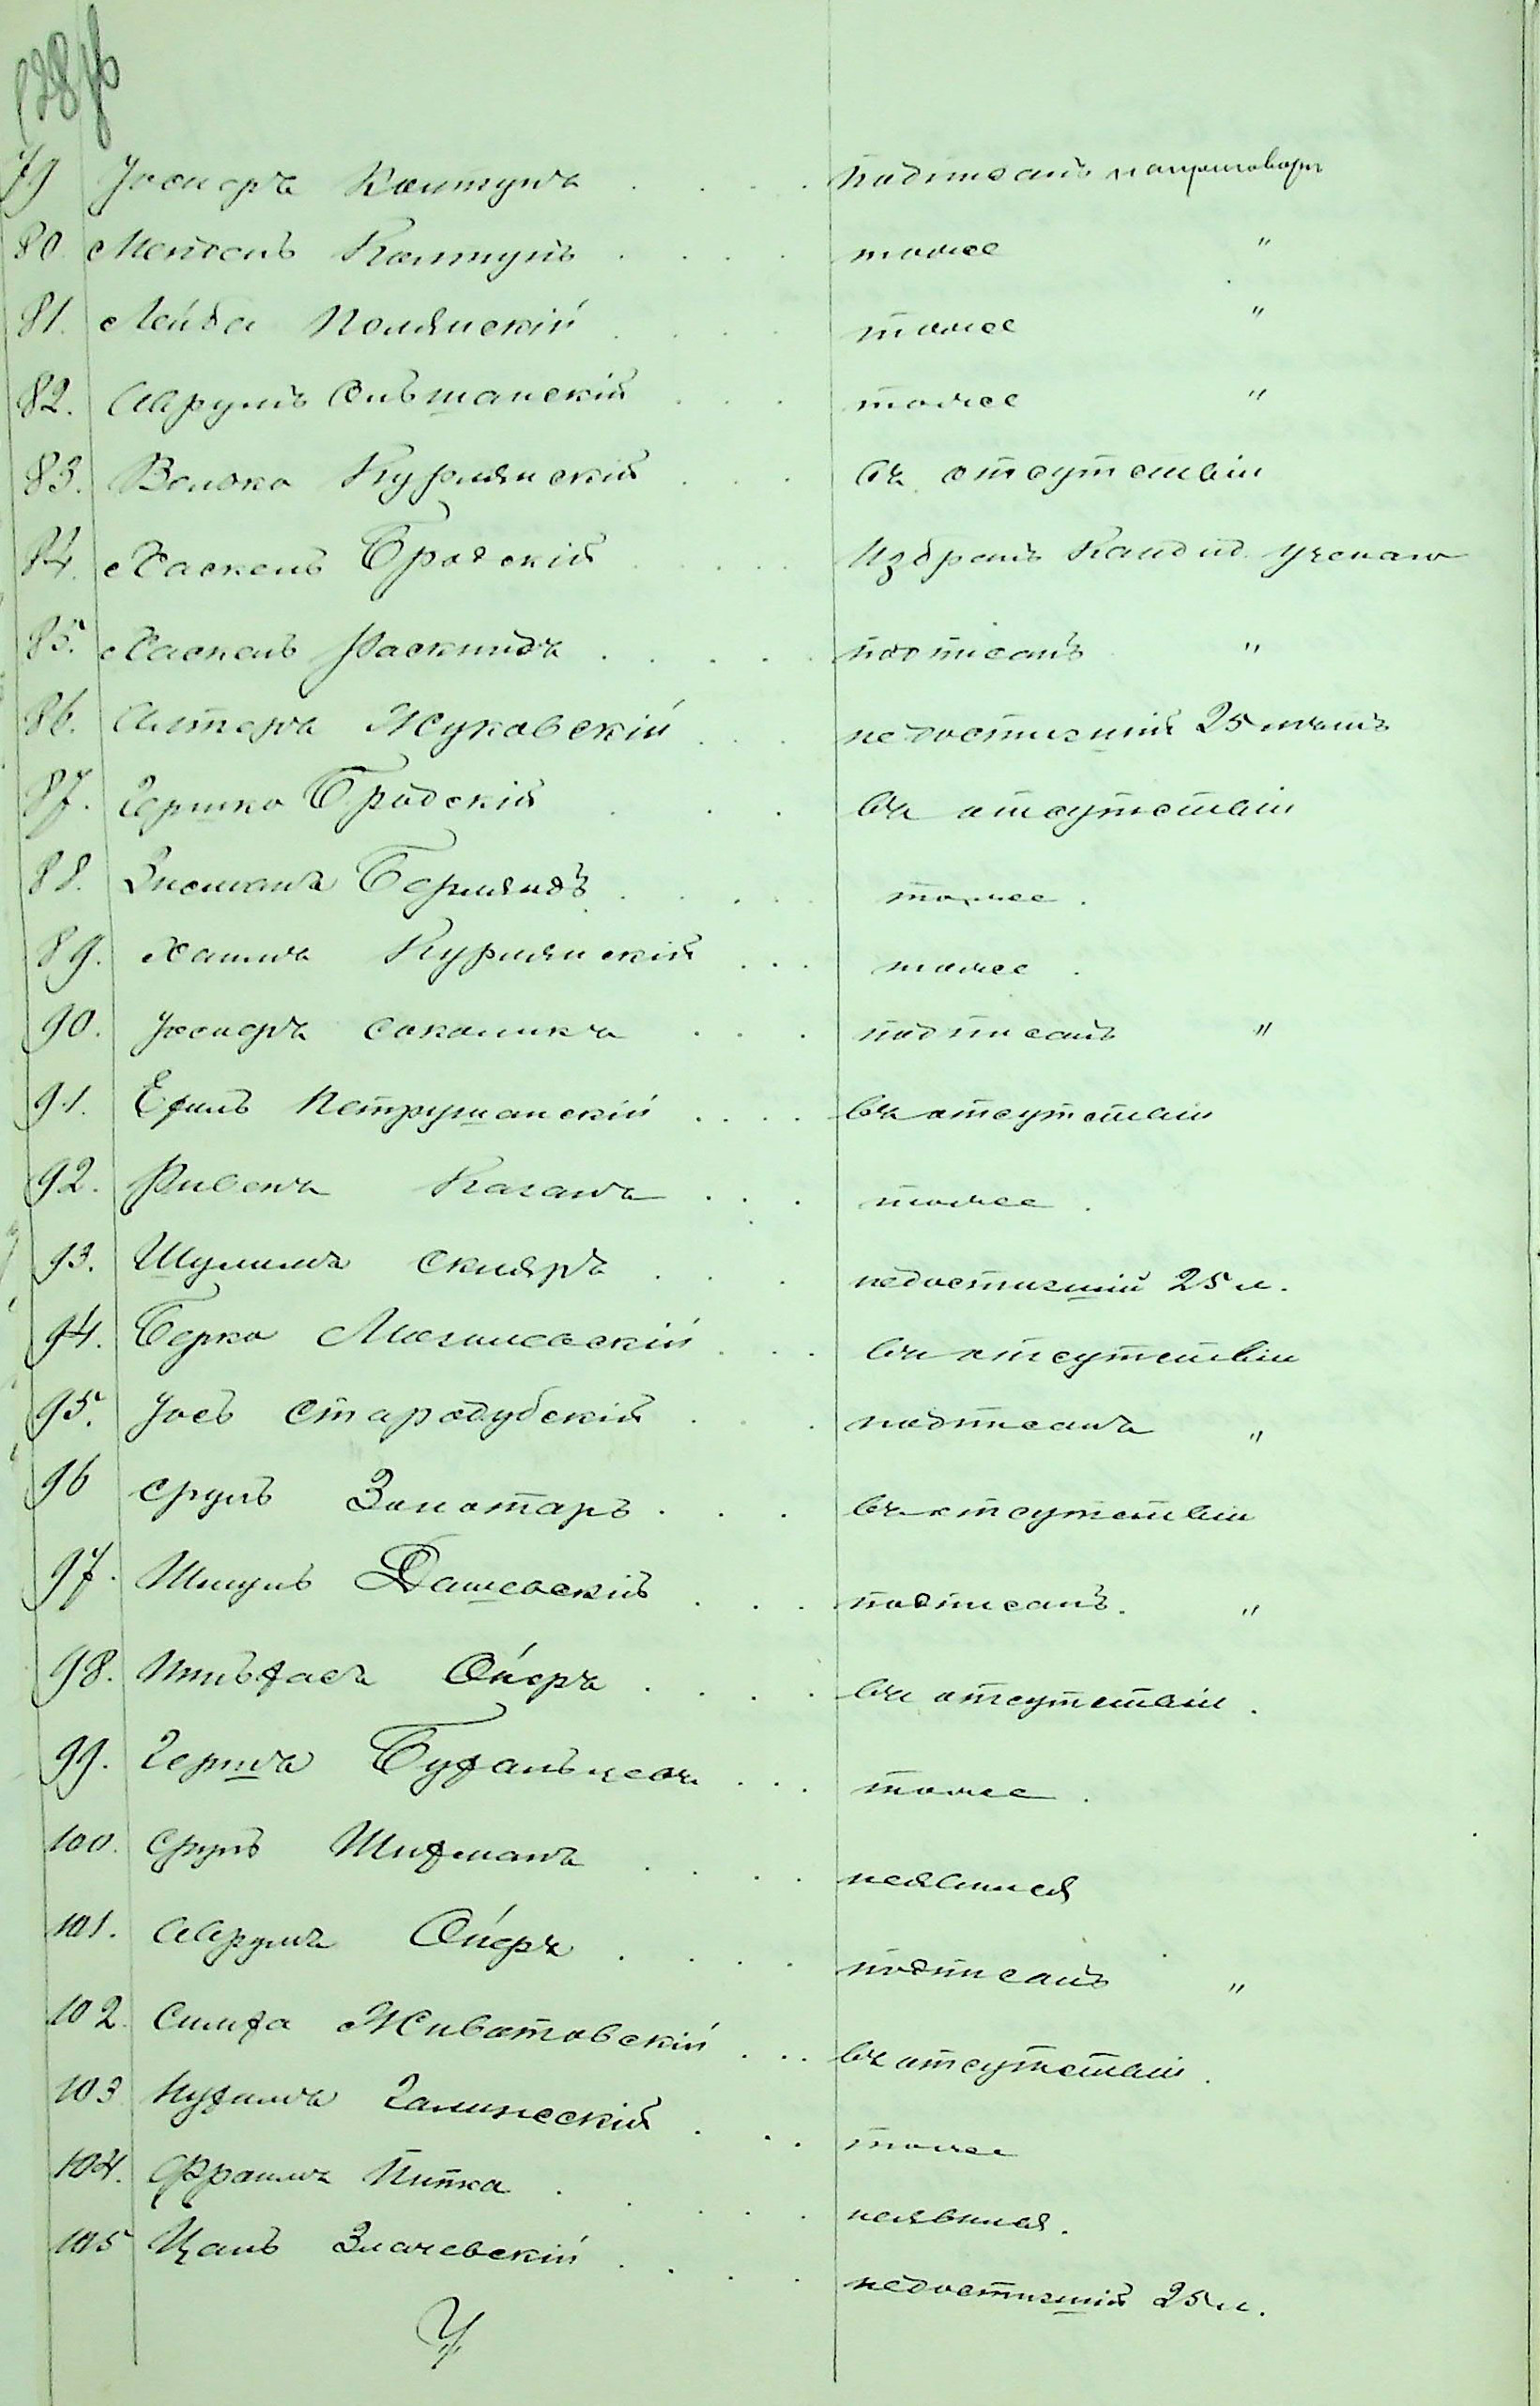 79 Іосперъ Колтунъ . . . . подписанъ на приговорѣ
80. Мендель Колтунъ . . . тоже "
81. Лейба Полянскій . . . тоже "
82. Аврумъ Ольшанскій . . . тоже "
83. Волько Курлянскій . . . въ отсутствіи
84. Хаскель Бродскій . . . . . Избранъ Кандид.
85. Хаскель Раскиндъ . . . . . подписанъ "
86. Алтеръ Жуковскій . . . недостигшій 25 лѣтъ
87. Гершко Бродскій . . . въ отсутствіи
88. Зисманъ Берляндъ . . . . . тоже .
89. Хаимъ Курлянскій . . . тоже .
90. Іосперъ Соколикъ . . . подписанъ "
91. Ефилъ Петрушанскій . . . . въ отсутствіи
92. Рувенъ Каганъ . . . тоже .
93. Шулимъ Скляръ . . . недостигшій 25 л.
94. Берко Могилевскій . . . въ отсутствіи
95. Іось Стародубскій . . . подписанъ "
96 Сруль Золотарь . . . въ отсутствіи
97. Шмуль Дашевскій . . . подписанъ. "
98. Пиньхасъ Оперъ . . . . въ отсутствіи .
99. Гершъ Буханьцевъ . . . тоже .
100. Сруль Шифманъ . . . . неявился
101. Аврумъ Оперъ . . . . подписанъ "
102. Симха Животовскій . . . въ отсутствіи .
103 Нухимъ Галинескій . . . тоже
104. Фроимъ Питка . . . . неявился.
105 Цаль Златевскій . . . . недостигшій 25 л.